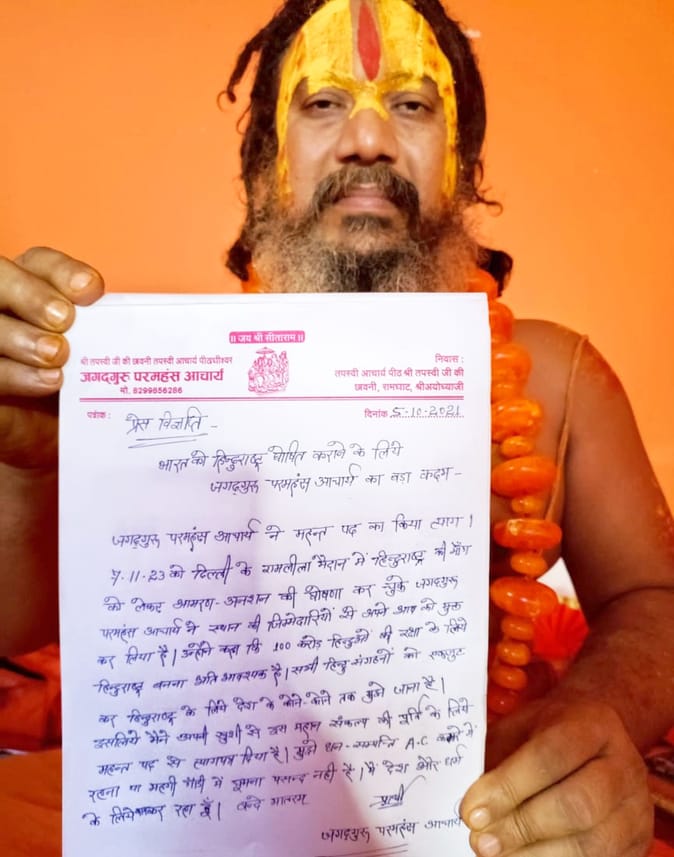 ॥ जय श्री सीताराम ॥
श्री तपस्वी जी की छावनी तपस्वी आचार्य पीठाधीश्वर
जगद्गुरु परमहंस आचार्य
मो. 8299856286
निवास :
तपस्वी आचार्य पीठ श्री तपस्वी जी की
छावनी, रामघाट, श्रीअयोध्याजी
पत्रांक :
दिनांक 5-10-2021
प्रेस विज्ञप्ति -
भारत को हिन्दुराष्ट्र घोषित कराने के लिये
जगद्गुरु परमहंस आचार्य का बड़ा कदम -
जगद्गुरु परमहंस आचार्य ने महन्त पद का किया त्याग।
7.11.23 को दिल्ली के रामलीला मैदान में हिन्दुराष्ट्र की माँग
को लेकर आमरण-अनशन की घोषणा कर चुके जगद्गुरु
परमहंस आचार्य ने स्थान की जिम्मेदारियों से अपने आप को मुक्त
कर लिया है। उन्होंने कहा कि 100 करोड़ हिन्दुओं की रक्षा के लिये
हिन्दुराष्ट्र बनना अति आवश्यक है। सभी हिन्दु संगठनों को एकजुट
कर हिन्दुराष्ट्र के लिये देश के कोने-कोने तक मुझे जाना है।
इसलिये मैंने अपनी खुशी से इस महान संकल्प की पूर्ति के लिये
महन्त पद से त्यागपत्र दिया है। मुझे धन-सम्पत्ति A.C. कमरे में
रहना या महंगी गाड़ी में घूमना पसन्द नहीं है। मैं देश और धर्म
के लिये कर रहा हूँ। वन्दे मातरम
प्रार्थी
जगद्गुरु परमहंस आचार्य